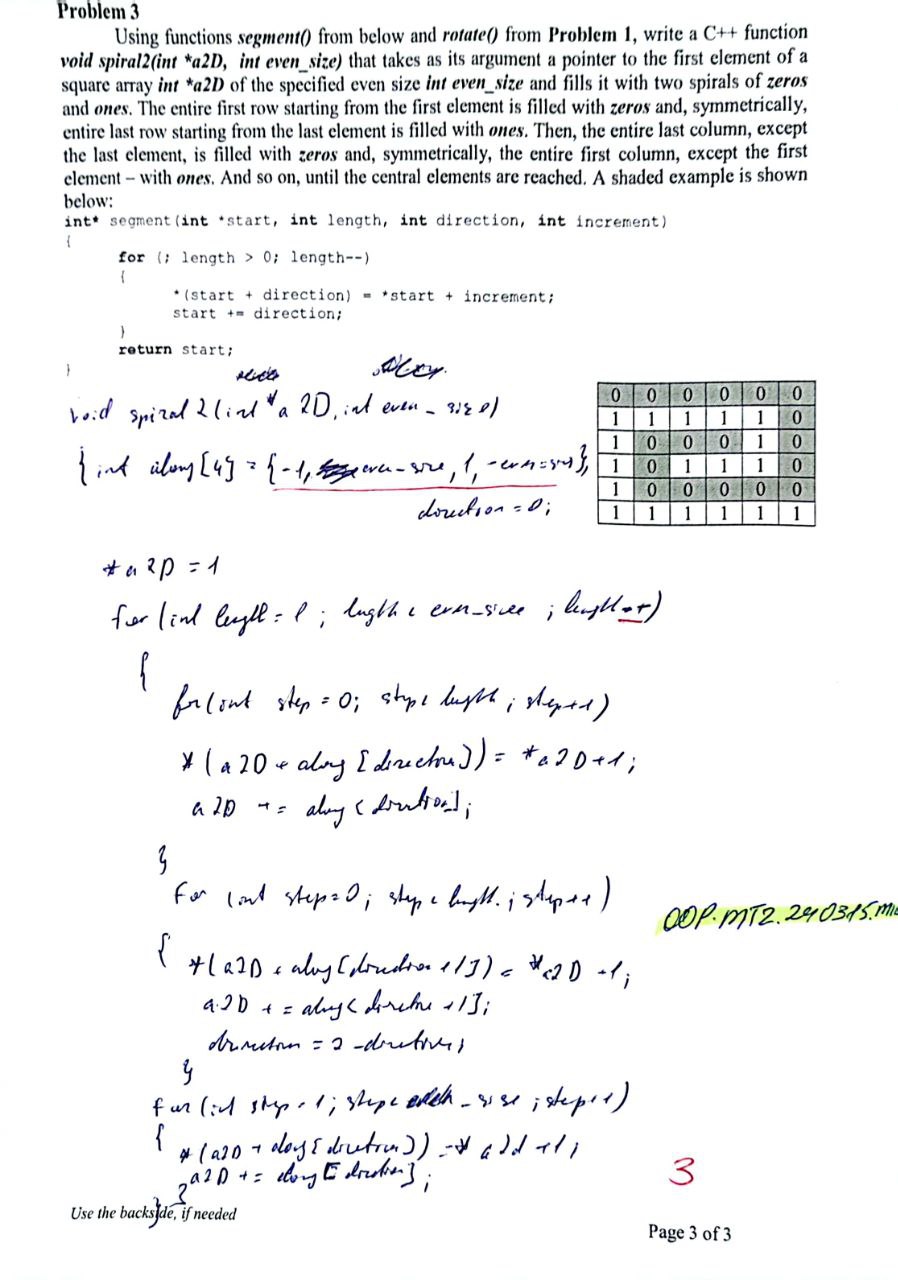 Problem 3
Using functions segment() from below and rotate() from Problem 1, write a C++ function
void spiral2(int *a2D, int even_size) that takes as its argument a pointer to the first element of a
square array int *a2D of the specified even size int even_size and fills it with two spirals of zeros
and ones. The entire first row starting from the first element is filled with zeros and, symmetrically,
entire last row starting from the last element is filled with ones. Then, the entire last column, except
the last element, is filled with zeros and, symmetrically, the entire first column, except the first
element – with ones. And so on, until the central elements are reached. A shaded example is shown
below:
int* segment(int *start, int length, int direction, int increment)
{
for (; length > 0; length--)
{
*(start + direction) = *start + increment;
start += direction;
}
return start;
}
void spiral2(int *a2D, int even_size)
{ int along[4] = {-1, even-size, 1, -even-size},
direction = 0;
0 0 0 0 0 0
1 1 1 1 1 0
1 0 0 0 1 0
1 0 1 1 1 0
1 0 0 0 0 0
1 1 1 1 1 1
*a2D = 1
for (int length = 1; length < even_size; length++)
{
for(int step = 0; step < length; step++)
*(a2D + along[direction]) = *a2D+1;
a2D += along[direction];
}
for (int step=0; step < length; step++)
{
*(a2D + along[direction+1]) = *a2D +1;
a2D += along[direction+1];
direction = 2 -direction;
}
OOP.MT2.240315.Mi
for (int step=1; step < even_size; step++)
{
*(a2D + along[direction]) = *a2d +1;
a2D += along[direction];
}
}
3
Use the backside, if needed
Page 3 of 3